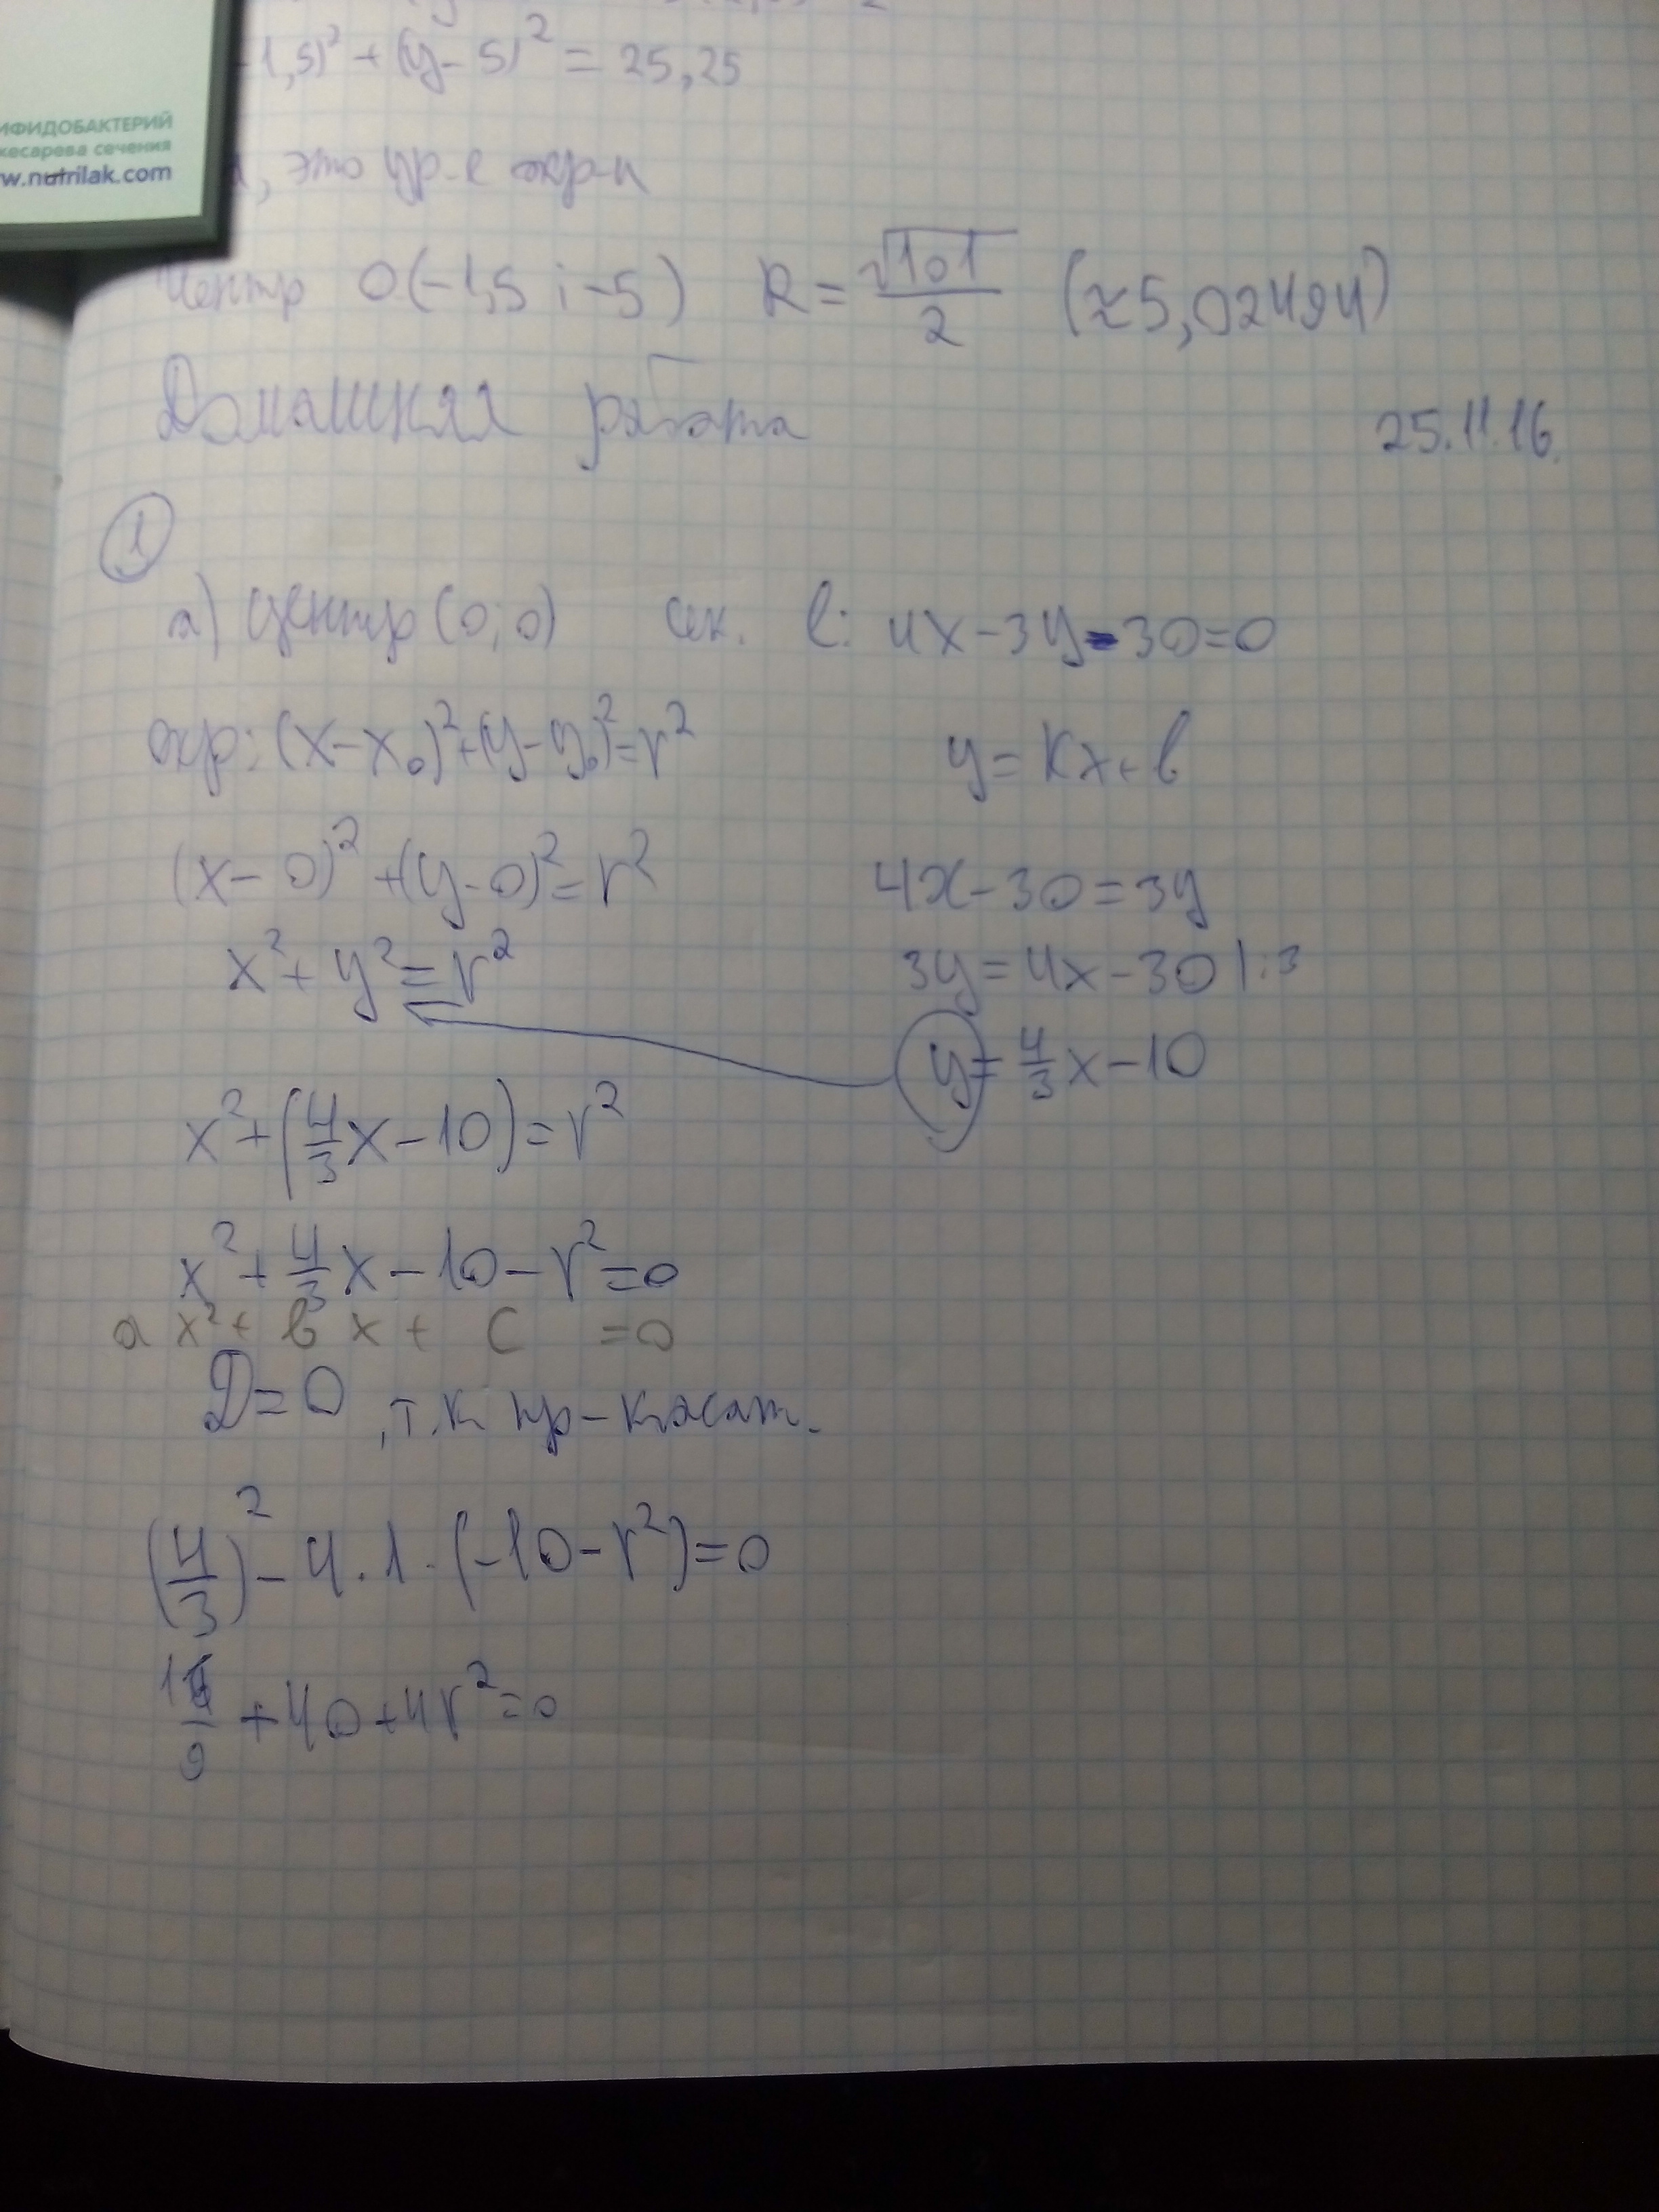 -1,5)² + (y-5)² = 25,25
ИФИДОБАКТЕРИЙ
кесарева сечения
w.nutrilak.com
, это ур-е окр-и
Центр O(-1,5 ; -5) R = √101/2 (≈5,02494)
Домашняя работа 25.11.16.
1
а) Центр (0; 0) l: 4x-3y-30=0
окр: (x-x₀)²+(y-y₀)²=r² y=kx+b
(x-0)²+(y-0)²=r² 4x-30=3y
x²+y²=r² 3y=4x-30 |:3
y=4/3x-10
x²+(4/3x-10)=r²
x²+4/3x-10-r²=0
a x²+ b x + c =0
D=0, т.к пр-касат.
(4/3)²-4·1·(-10-r²)=0
16/9+40+4r²=0